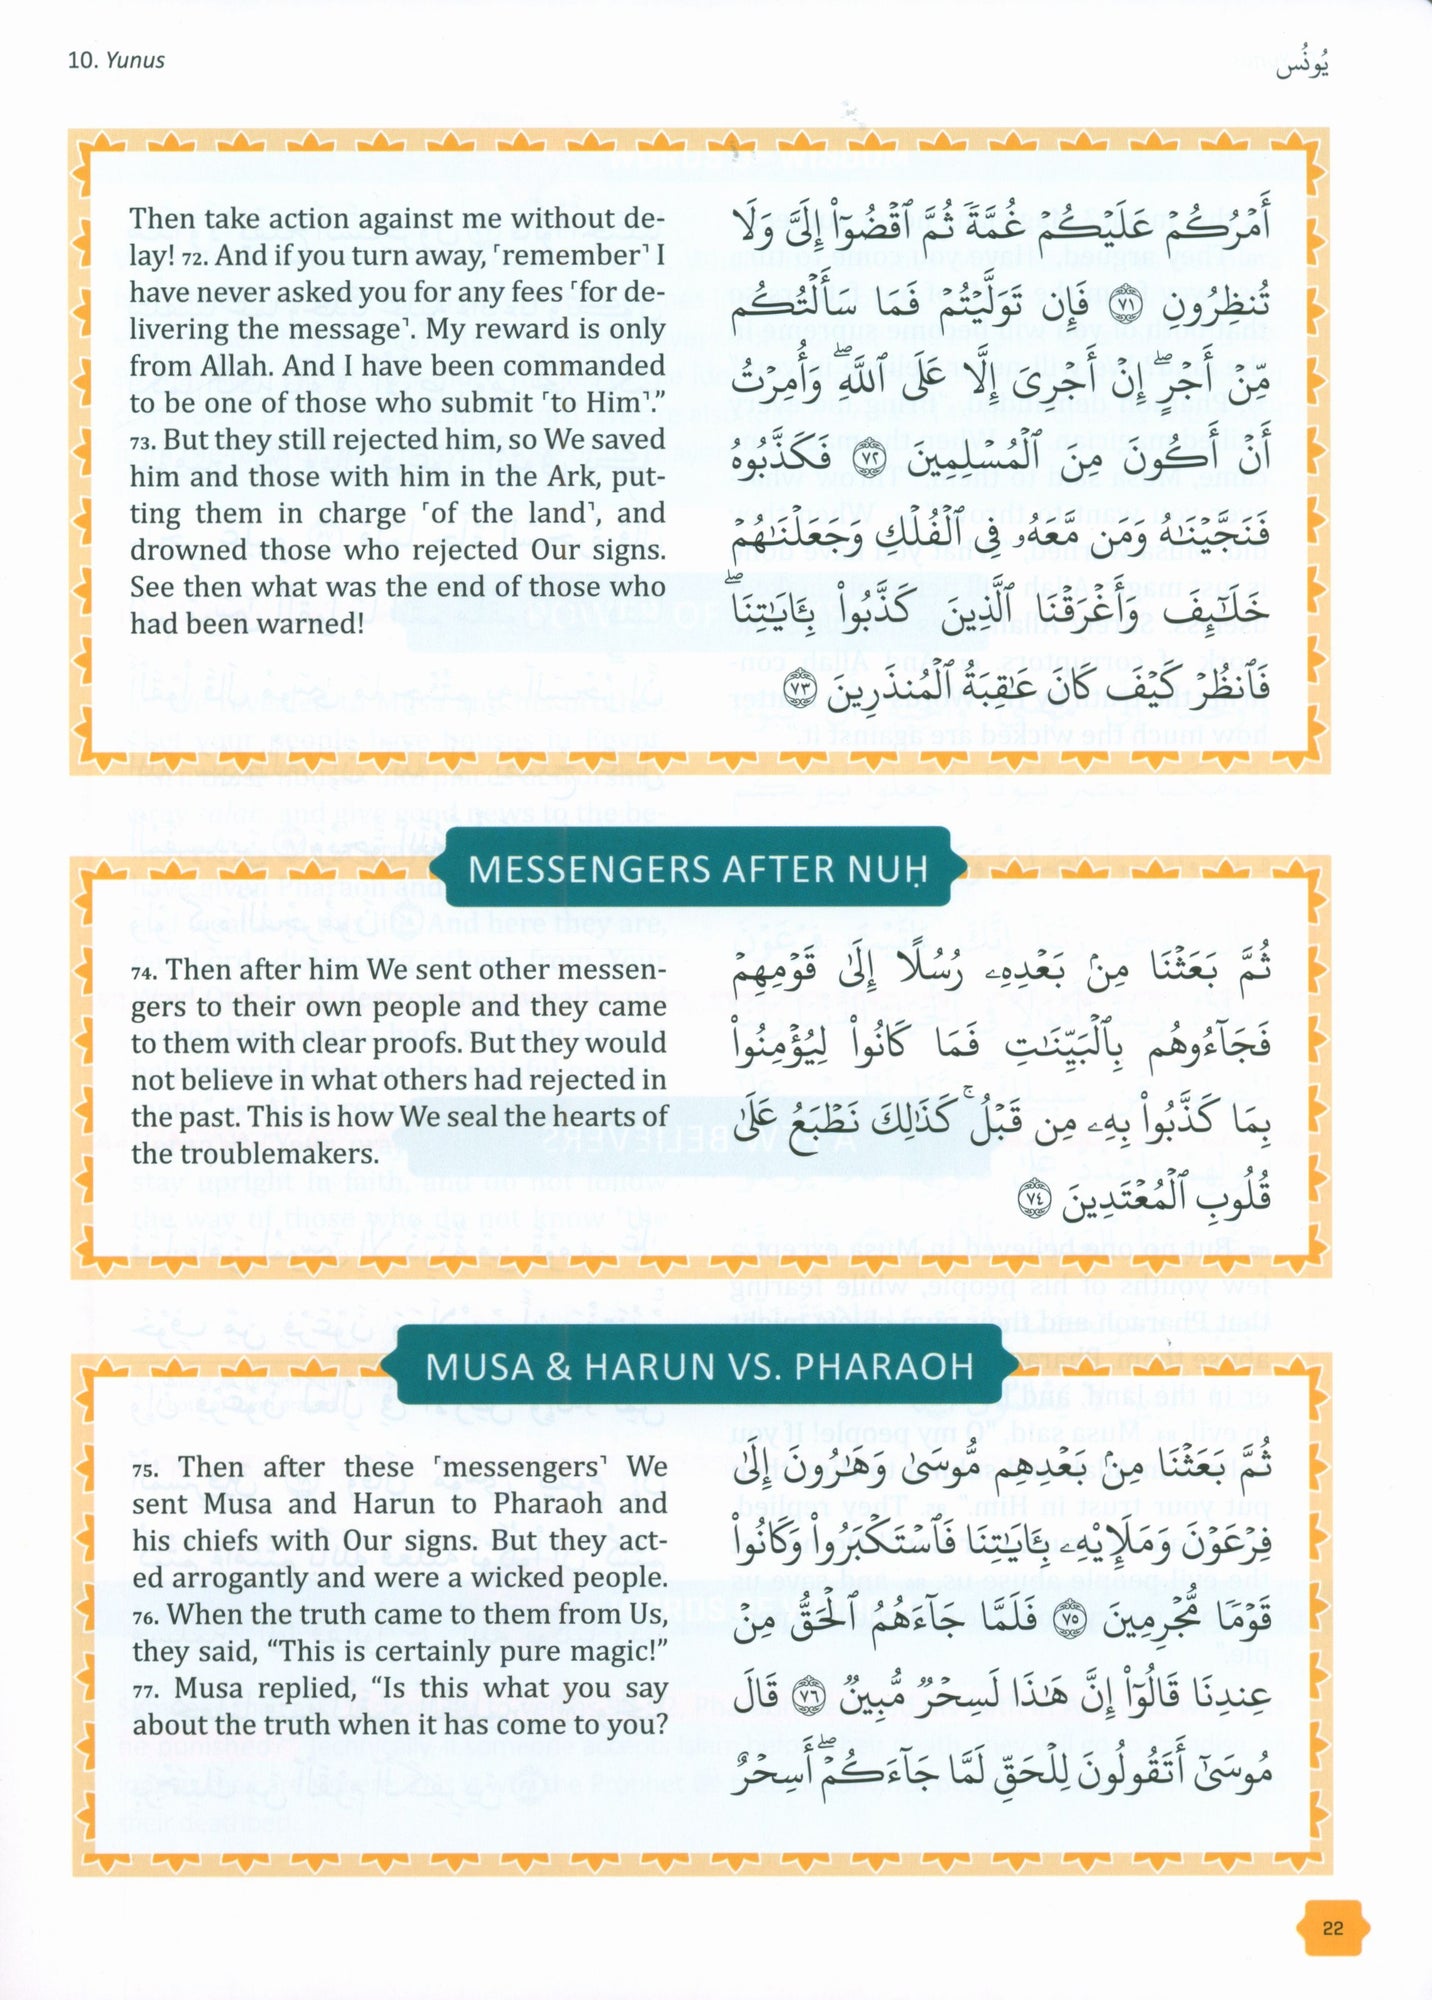 10. Yunus
يُونُس
Then take action against me without de-
lay! 72. And if you turn away, ⸢remember⸣ I
have never asked you for any fees ⸢for de-
livering the message⸣. My reward is only
from Allah. And I have been commanded
to be one of those who submit ⸢to Him⸣.”
73. But they still rejected him, so We saved
him and those with him in the Ark, put-
ting them in charge ⸢of the land⸣, and
drowned those who rejected Our signs.
See then what was the end of those who
had been warned!
أَمْرُكُمْ عَلَيْكُمْ غُمَّةً ثُمَّ ٱقْضُوٓا۟ إِلَىَّ وَلَا
تُنظِرُونِ ٧١ فَإِن تَوَلَّيْتُمْ فَمَا سَأَلْتُكُم
مِّنْ أَجْرٍ ۖ إِنْ أَجْرِىَ إِلَّا عَلَى ٱللَّهِ ۖ وَأُمِرْتُ
أَنْ أَكُونَ مِنَ ٱلْمُسْلِمِينَ ٧٢ فَكَذَّبُوهُ
فَنَجَّيْنَـٰهُ وَمَن مَّعَهُۥ فِى ٱلْفُلْكِ وَجَعَلْنَـٰهُمْ
خَلَـٰٓئِفَ وَأَغْرَقْنَا ٱلَّذِينَ كَذَّبُوا۟ بِـَٔايَـٰتِنَا ۖ
فَٱنظُرْ كَيْفَ كَانَ عَـٰقِبَةُ ٱلْمُنذَرِينَ ٧٣
MESSENGERS AFTER NUḤ
74. Then after him We sent other messen-
gers to their own people and they came
to them with clear proofs. But they would
not believe in what others had rejected in
the past. This is how We seal the hearts of
the troublemakers.
ثُمَّ بَعَثْنَا مِنۢ بَعْدِهِۦ رُسُلًا إِلَىٰ قَوْمِهِمْ
فَجَآءُوهُم بِٱلْبَيِّنَـٰتِ فَمَا كَانُوا۟ لِيُؤْمِنُوا۟
بِمَا كَذَّبُوا۟ بِهِۦ مِن قَبْلُ ۚ كَذَٰلِكَ نَطْبَعُ عَلَىٰ
قُلُوبِ ٱلْمُعْتَدِينَ ٧٤
MUSA & HARUN VS. PHARAOH
75. Then after these ⸢messengers⸣ We
sent Musa and Harun to Pharaoh and
his chiefs with Our signs. But they act-
ed arrogantly and were a wicked people.
76. When the truth came to them from Us,
they said, “This is certainly pure magic!”
77. Musa replied, “Is this what you say
about the truth when it has come to you?
ثُمَّ بَعَثْنَا مِنۢ بَعْدِهِم مُّوسَىٰ وَهَـٰرُونَ إِلَىٰ
فِرْعَوْنَ وَمَلَإِي۟هِۦ بِـَٔايَـٰتِنَا فَٱسْتَكْبَرُوا۟ وَكَانُوا۟
قَوْمًا مُّجْرِمِينَ ٧٥ فَلَمَّا جَآءَهُمُ ٱلْحَقُّ مِنْ
عِندِنَا قَالُوٓا۟ إِنَّ هَـٰذَا لَسِحْرٌ مُّبِينٌ ٧٦ قَالَ
مُوسَىٰٓ أَتَقُولُونَ لِلْحَقِّ لَمَّا جَآءَكُمْ ۖ أَسِحْرٌ
22